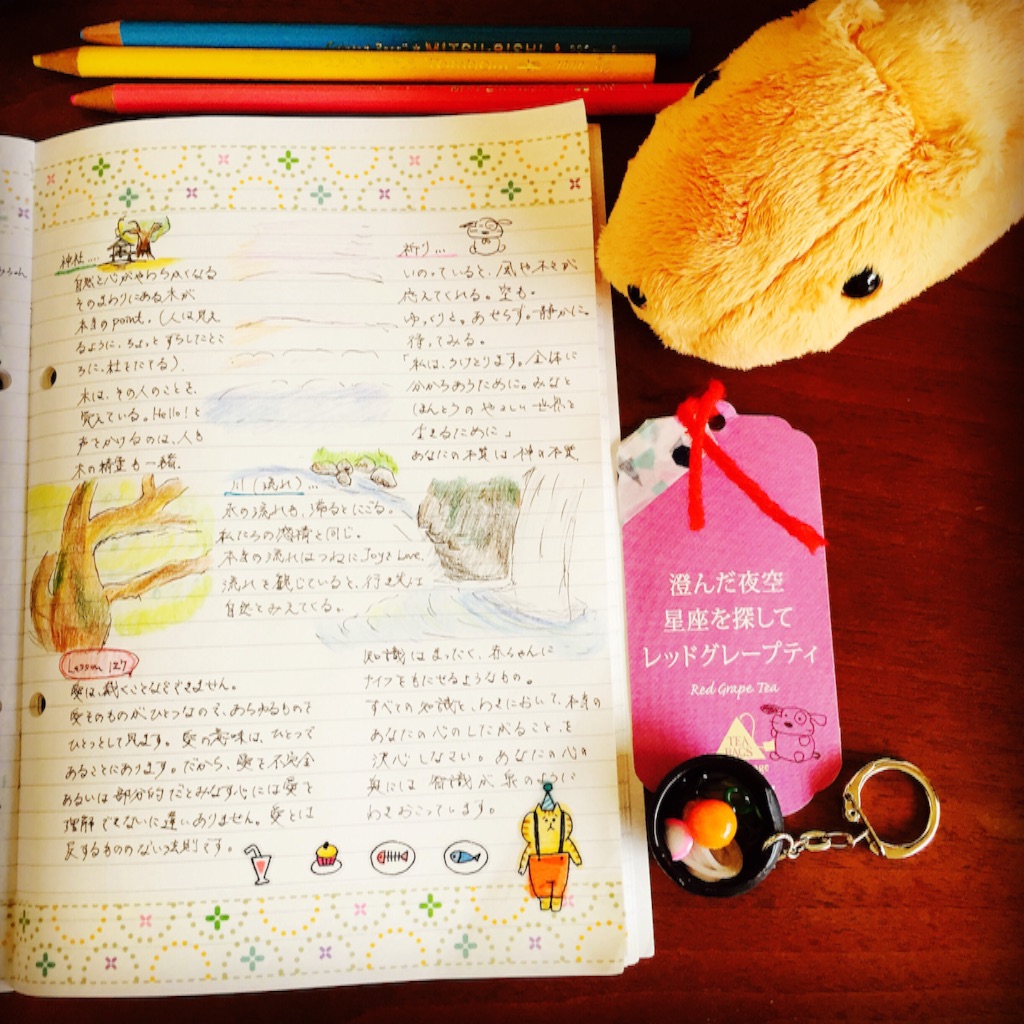 MITSU-BISHI
神社...
自然と心がやわらかくなる
そのまわりにある木が
本当のpoint.(人は見え
るように、ちょっと ずらしたとこ
ろに、社をたてる)
木は、その人のことを、
覚えている。Hello!と
声をかけるのは、人も
木の精霊も一緒.
祈り...
いのっていると、風や木々が
応えてくれる。空も。
ゆっくりと。あせらず。静かに。
待ってみる。
「私は、うけとります。全体に
分かちあうために。みなと
ほんとうの やさしい世界を
生きるために」
あなたの本質は 神の本質
川(流れ)...
水の流れも、滞るとにごる。
私たちの感情と同じ。
本当の流れはつねに、JoyとLove.
流れを観じていると、行き先は
自然とみえてくる。
Lesson 127
愛は、裁くことなどできません。
愛そのものが、ひとつなので、あらゆるものを
ひとつとして見ます。愛の意味は、ひとつで
あることにあります。だから、愛を不完全
あるいは部分的だとみなす心には愛を
理解できないに違いありません。愛とは
反するもののない法則です。
知識はまったく、赤ちゃんに
ナイフをもたせるようなもの。
すべての知識と、わざにおいて、本当の
あなたの心のしたがること、を
決心しなさい。あなたの心の
奥には 智識が 泉のように
わきおこっています。
澄んだ夜空
星座を探して
レッドグレープティ
Red Grape Tea
TEA
BAGS